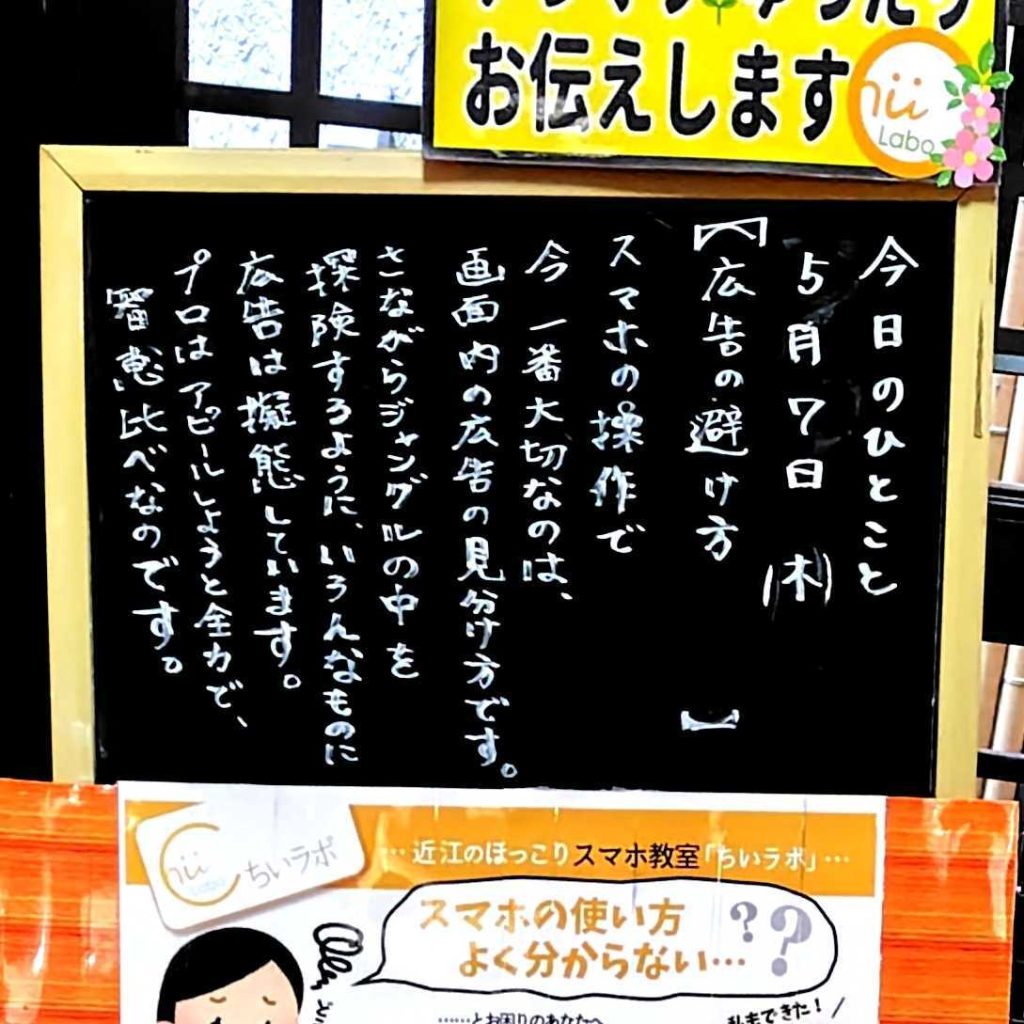 お伝えします
Labo
今日のひとこと
5月7日(木)
【広告の避け方】
スマホの操作で
今一番大切なのは、
画面内の広告の見分け方です。
さながらジャングルの中を
探険するように、いろんなものに
広告は擬態しています。
プロはアピールしようと全力で、
智恵比べなのです。
ちいラボ
…近江のほっこりスマホ教室「ちいラボ」…
スマホの使い方
よく分からない…??
……とお困りのあなたへ
私もできた!